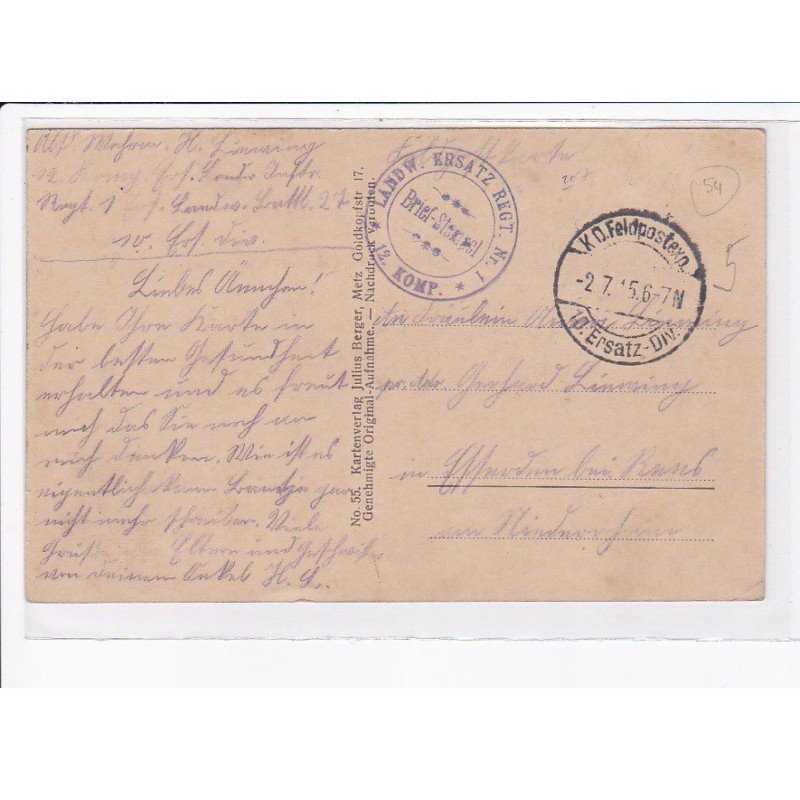 Abs. Wehrm. H. Linning
12. Komp. Ers. Landw. Inftr.
Regt 1 Ers. Landw. Battl. 27
10. Ers. Div.
Liebes Ännchen!
habe Ihre Karte in
der besten Gesundheit
erhalten und es freut
mich das Sie noch an
mich denken. Wie ist es
eigentlich kann gar
nicht mehr schreiben. Viele
Grüße Eltern und Geschwister
von deinem Onkel H. L.
No. 55. Kartenverlag Julius Berger, Metz Goldkopfstr 17.
Genehmigte Original-Aufnahme. — Nachdruck verboten.
Feldpostkarte
* LANDW. ERSATZ REGT. Nr. 1 *
Brief-Stempel
12. KOMP.
54
K.D. Feldpostexp.
-2.7.15.6-7N
10. Ersatz-Div.
5
An Fräulein Linning
pr. Adr. Gerhard Linning
in Esserden bei Rees
am Niederrhein